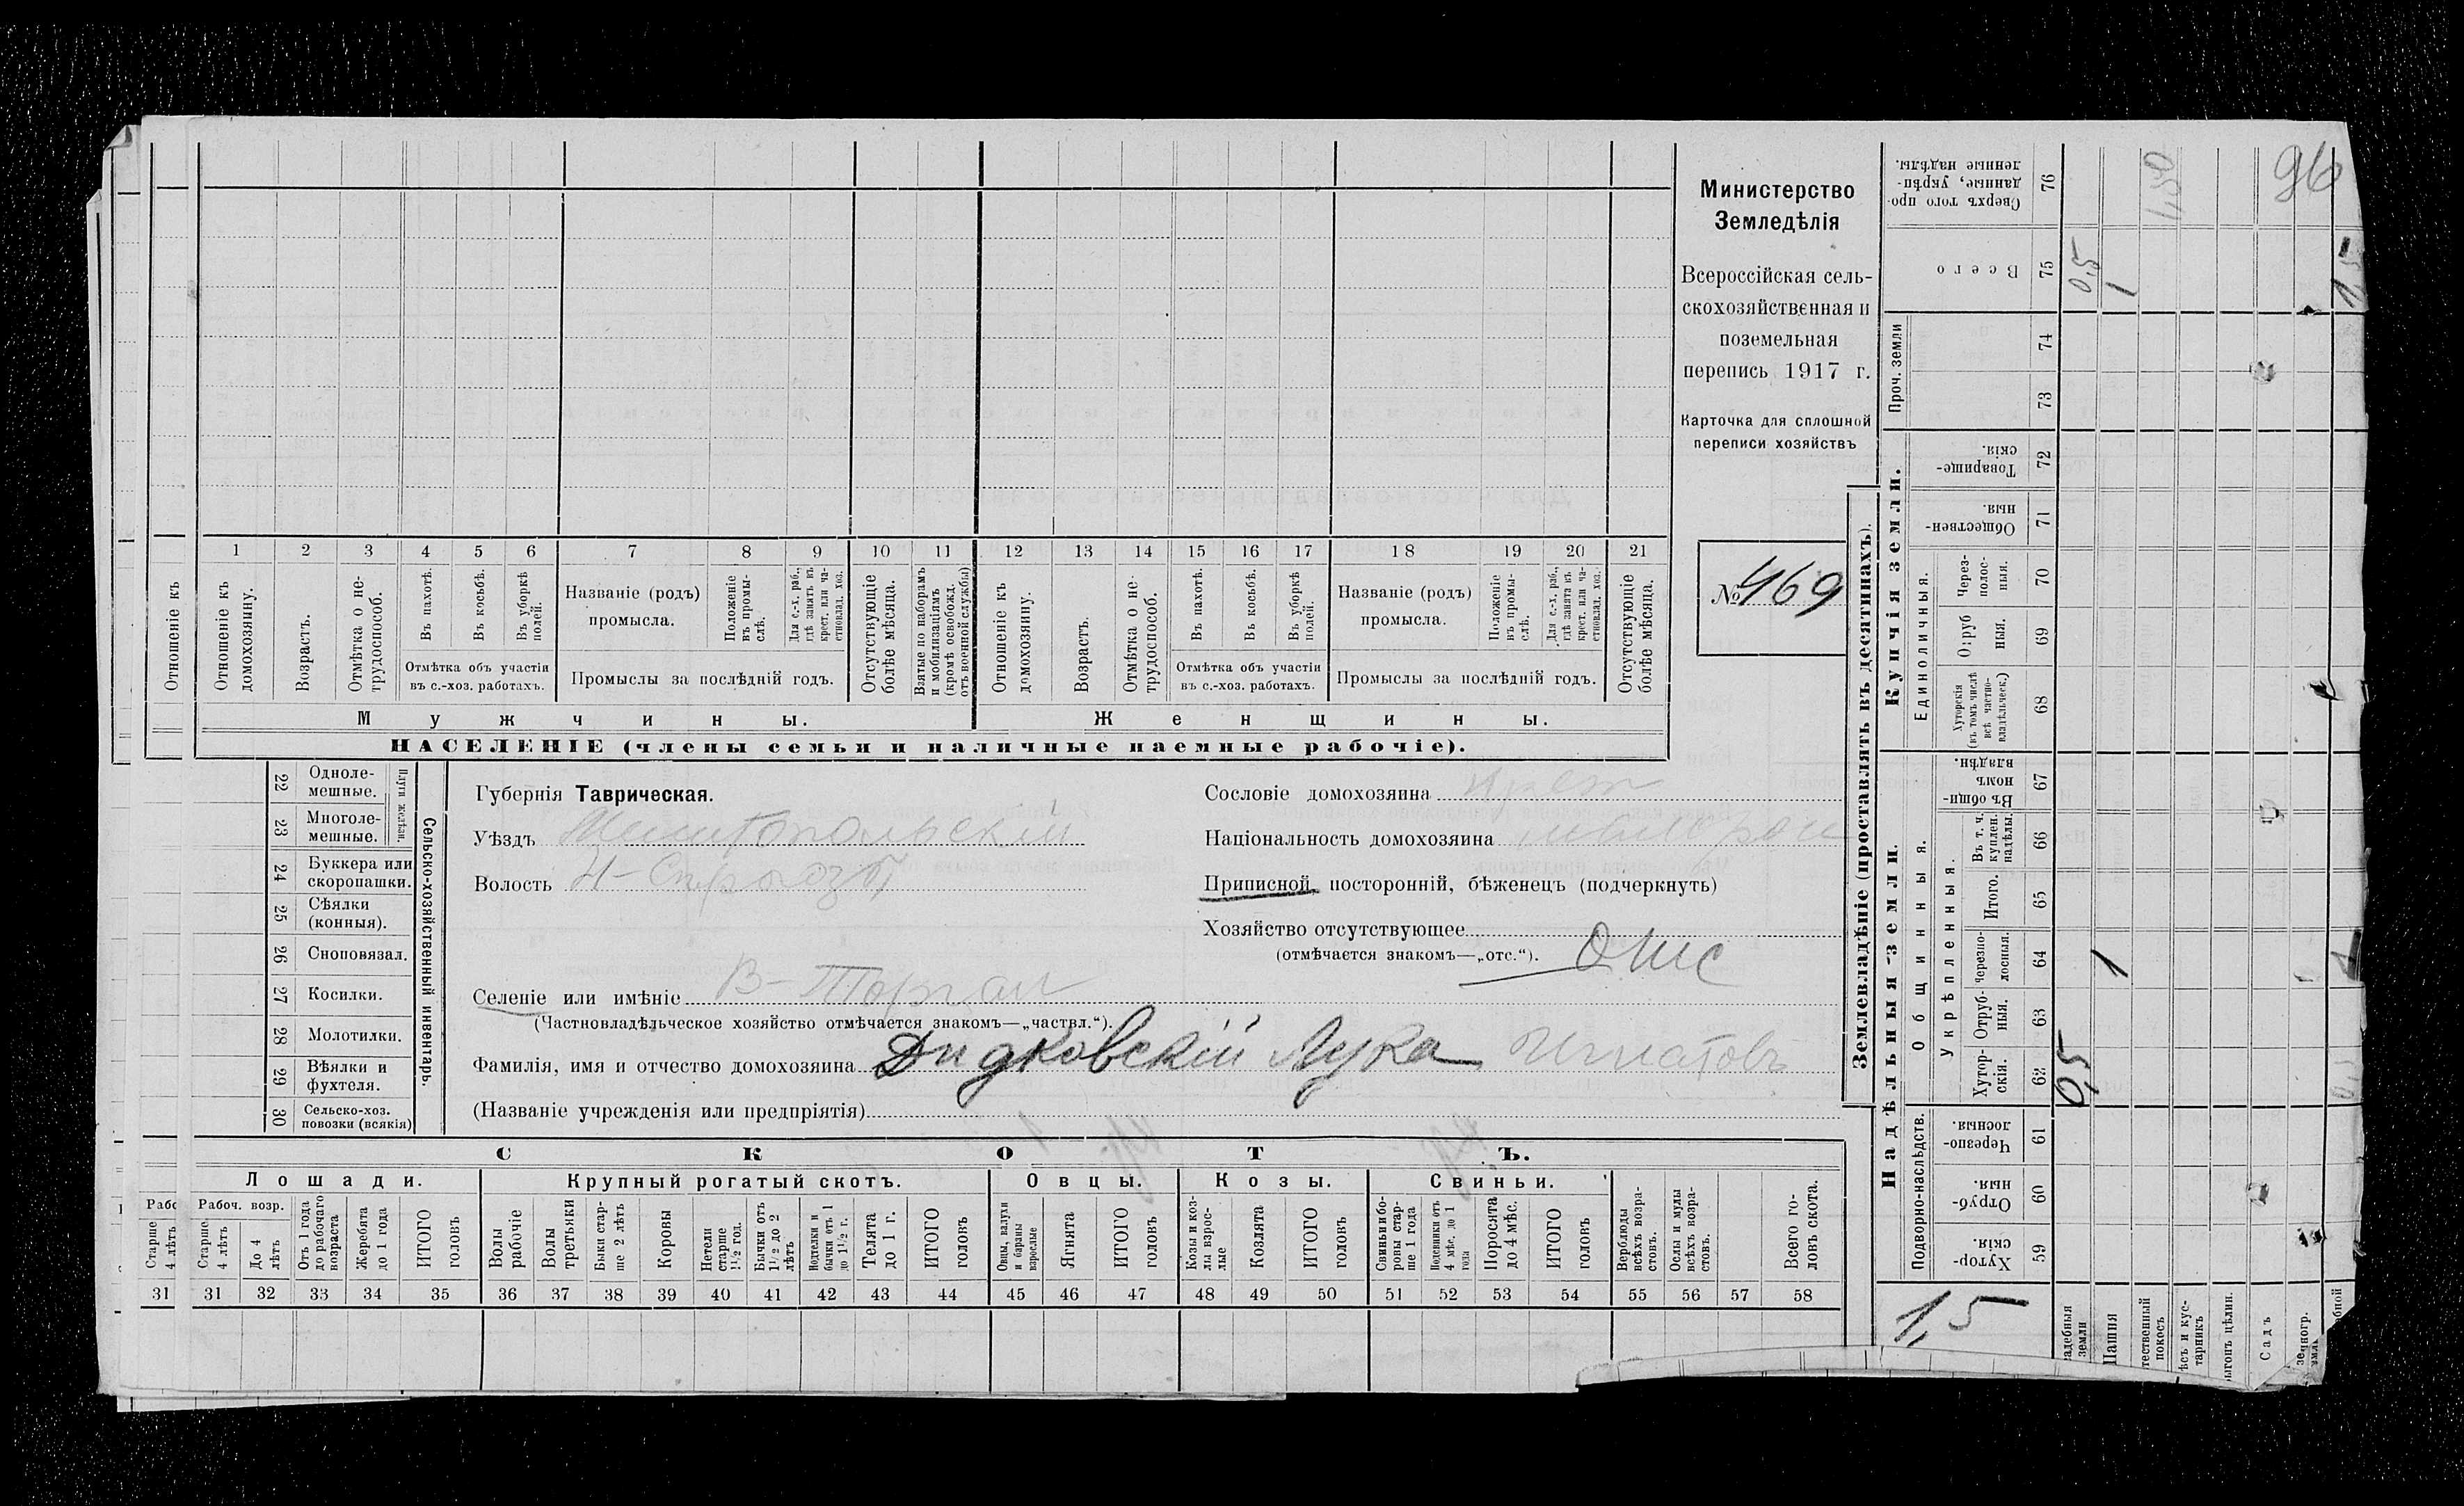 Министерство
Земледѣлія
Всероссійская сель-
скохозяйственная и
поземельная
перепись 1917 г.
Карточка для сплошной
переписи хозяйствъ
№ 469
1 2 3 4 5 6 7 8 9 10 11 12 13 14 15 16 17 18 19 20 21
Отношеніе къ
Отношеніе къ домохозяину.
Возрастъ.
Отмѣтка о не-трудоспособ.
Въ пахотѣ.
Въ косьбѣ.
Въ уборкѣ полей.
Отмѣтка объ участіи
въ с.-хоз. работахъ.
Названіе (родъ)
промысла.
Положеніе въ промы-слѣ.
Для с.-х. раб., гдѣ занятъ въ крест. или ча-стновлад. хоз.
Промыслы за послѣдній годъ.
Отсутствующіе болѣе мѣсяца.
Взятые по наборамъ и мобилизаціямъ (кромѣ освобожд. отъ военной службы)
Отношеніе къ домохозяину.
Возрастъ.
Отмѣтка о не-трудоспособ.
Въ пахотѣ.
Въ косьбѣ.
Въ уборкѣ полей.
Отмѣтка объ участіи
въ с.-хоз. работахъ.
Названіе (родъ)
промысла.
Положеніе въ промы-слѣ.
Для с.-х. раб., гдѣ занята въ крест. или ча-стновлад. хоз.
Промыслы за послѣдній годъ.
Отсутствующіе болѣе мѣсяца.
Мужчины.
Женщины.
НАСЕЛЕНІЕ (члены семьи и наличные наемные рабочіе).
22 Одноле-мешные.
23 Многоле-мешные.
Плуги желѣзн.
24 Буккера или скоропашки.
25 Сѣялки (конныя).
26 Сноповязал.
27 Косилки.
28 Молотилки.
29 Вѣялки и фухтеля.
30 Сельско-хоз. повозки (всякія)
Сельско-хозяйственный инвентарь.
Губернія Таврическая.
Уѣздъ Мелитопольскій
Волость Н-Сѣрогозы
Селеніе или имѣніе В-Торгаи
(Частновладѣльческое хозяйство отмѣчается знакомъ—„частвл.“).
Фамилія, имя и отчество домохозяина Дидковскій Лука Игнатовъ
(Названіе учрежденія или предпріятія)
Сословіе домохозяина крест
Національность домохозяина малорос
Приписной, посторонній, бѣженецъ (подчеркнуть)
Хозяйство отсутствующее
(отмѣчается знакомъ—„отс.“). Отс
СКОТЪ.
Лошади.
Крупный рогатый скотъ.
Овцы.
Козы.
Свиньи.
Рабоч. возр.
Старше 4 лѣтъ
Старше 4 лѣтъ
До 4 лѣтъ
Отъ 1 года до рабочаго возраста
Жеребята до 1 года
ИТОГО головъ
Волы рабочіе
Волы третьяки
Быки стар-ше 2 лѣтъ
Коровы
Нетели старше 1½ год.
Бычки отъ 1½ до 2 лѣтъ
Подтелки и бычки отъ 1 до 1½ г.
Телята до 1 г.
ИТОГО головъ
Овцы, валухи и бараны взрослые
Ягнята
ИТОГО головъ
Козы и коз-лы взрос-лые
Козлята
ИТОГО головъ
Свиньи и бо-ровы стар-ше 1 года
Подсвинки отъ 4 мѣс. до 1 года
Поросята до 4 мѣс.
ИТОГО головъ
Верблюды всѣхъ возра-стовъ.
Ослы и мулы всѣхъ возра-стовъ.
Всего го-ловъ скота.
31 31 32 33 34 35 36 37 38 39 40 41 42 43 44 45 46 47 48 49 50 51 52 53 54 55 56 57 58
Землевладѣніе (проставлять въ десятинахъ).
Надѣльныя земли.
Купчія земли.
Проч. земли
Подворно-наслѣдств.
Общинныя.
Укрѣпленныя.
Единоличныя.
Хутор-скія. 59
Отруб-ныя. 60
Черезпо-лосныя. 61
Хутор-скія. 62
Отруб-ныя. 63
Черезпо-лосныя. 64
Итого. 65
Въ т. ч. куплен. надѣлы. 66
Въ общи-номъ владѣн. 67
Хуторскія (въ томъ числѣ всѣ частно-владѣльческ.) 68
Отруб ныя. 69
Через-полос-ныя. 70
Обществен-ныя. 71
Товарище-скія. 72
73
74
Всего 75
Сверхъ того про-данные, укрѣп-ленные надѣлы. 76
1,5
0,5
0,5
1
1
1,50
96
1,5
Пашня
Садъ